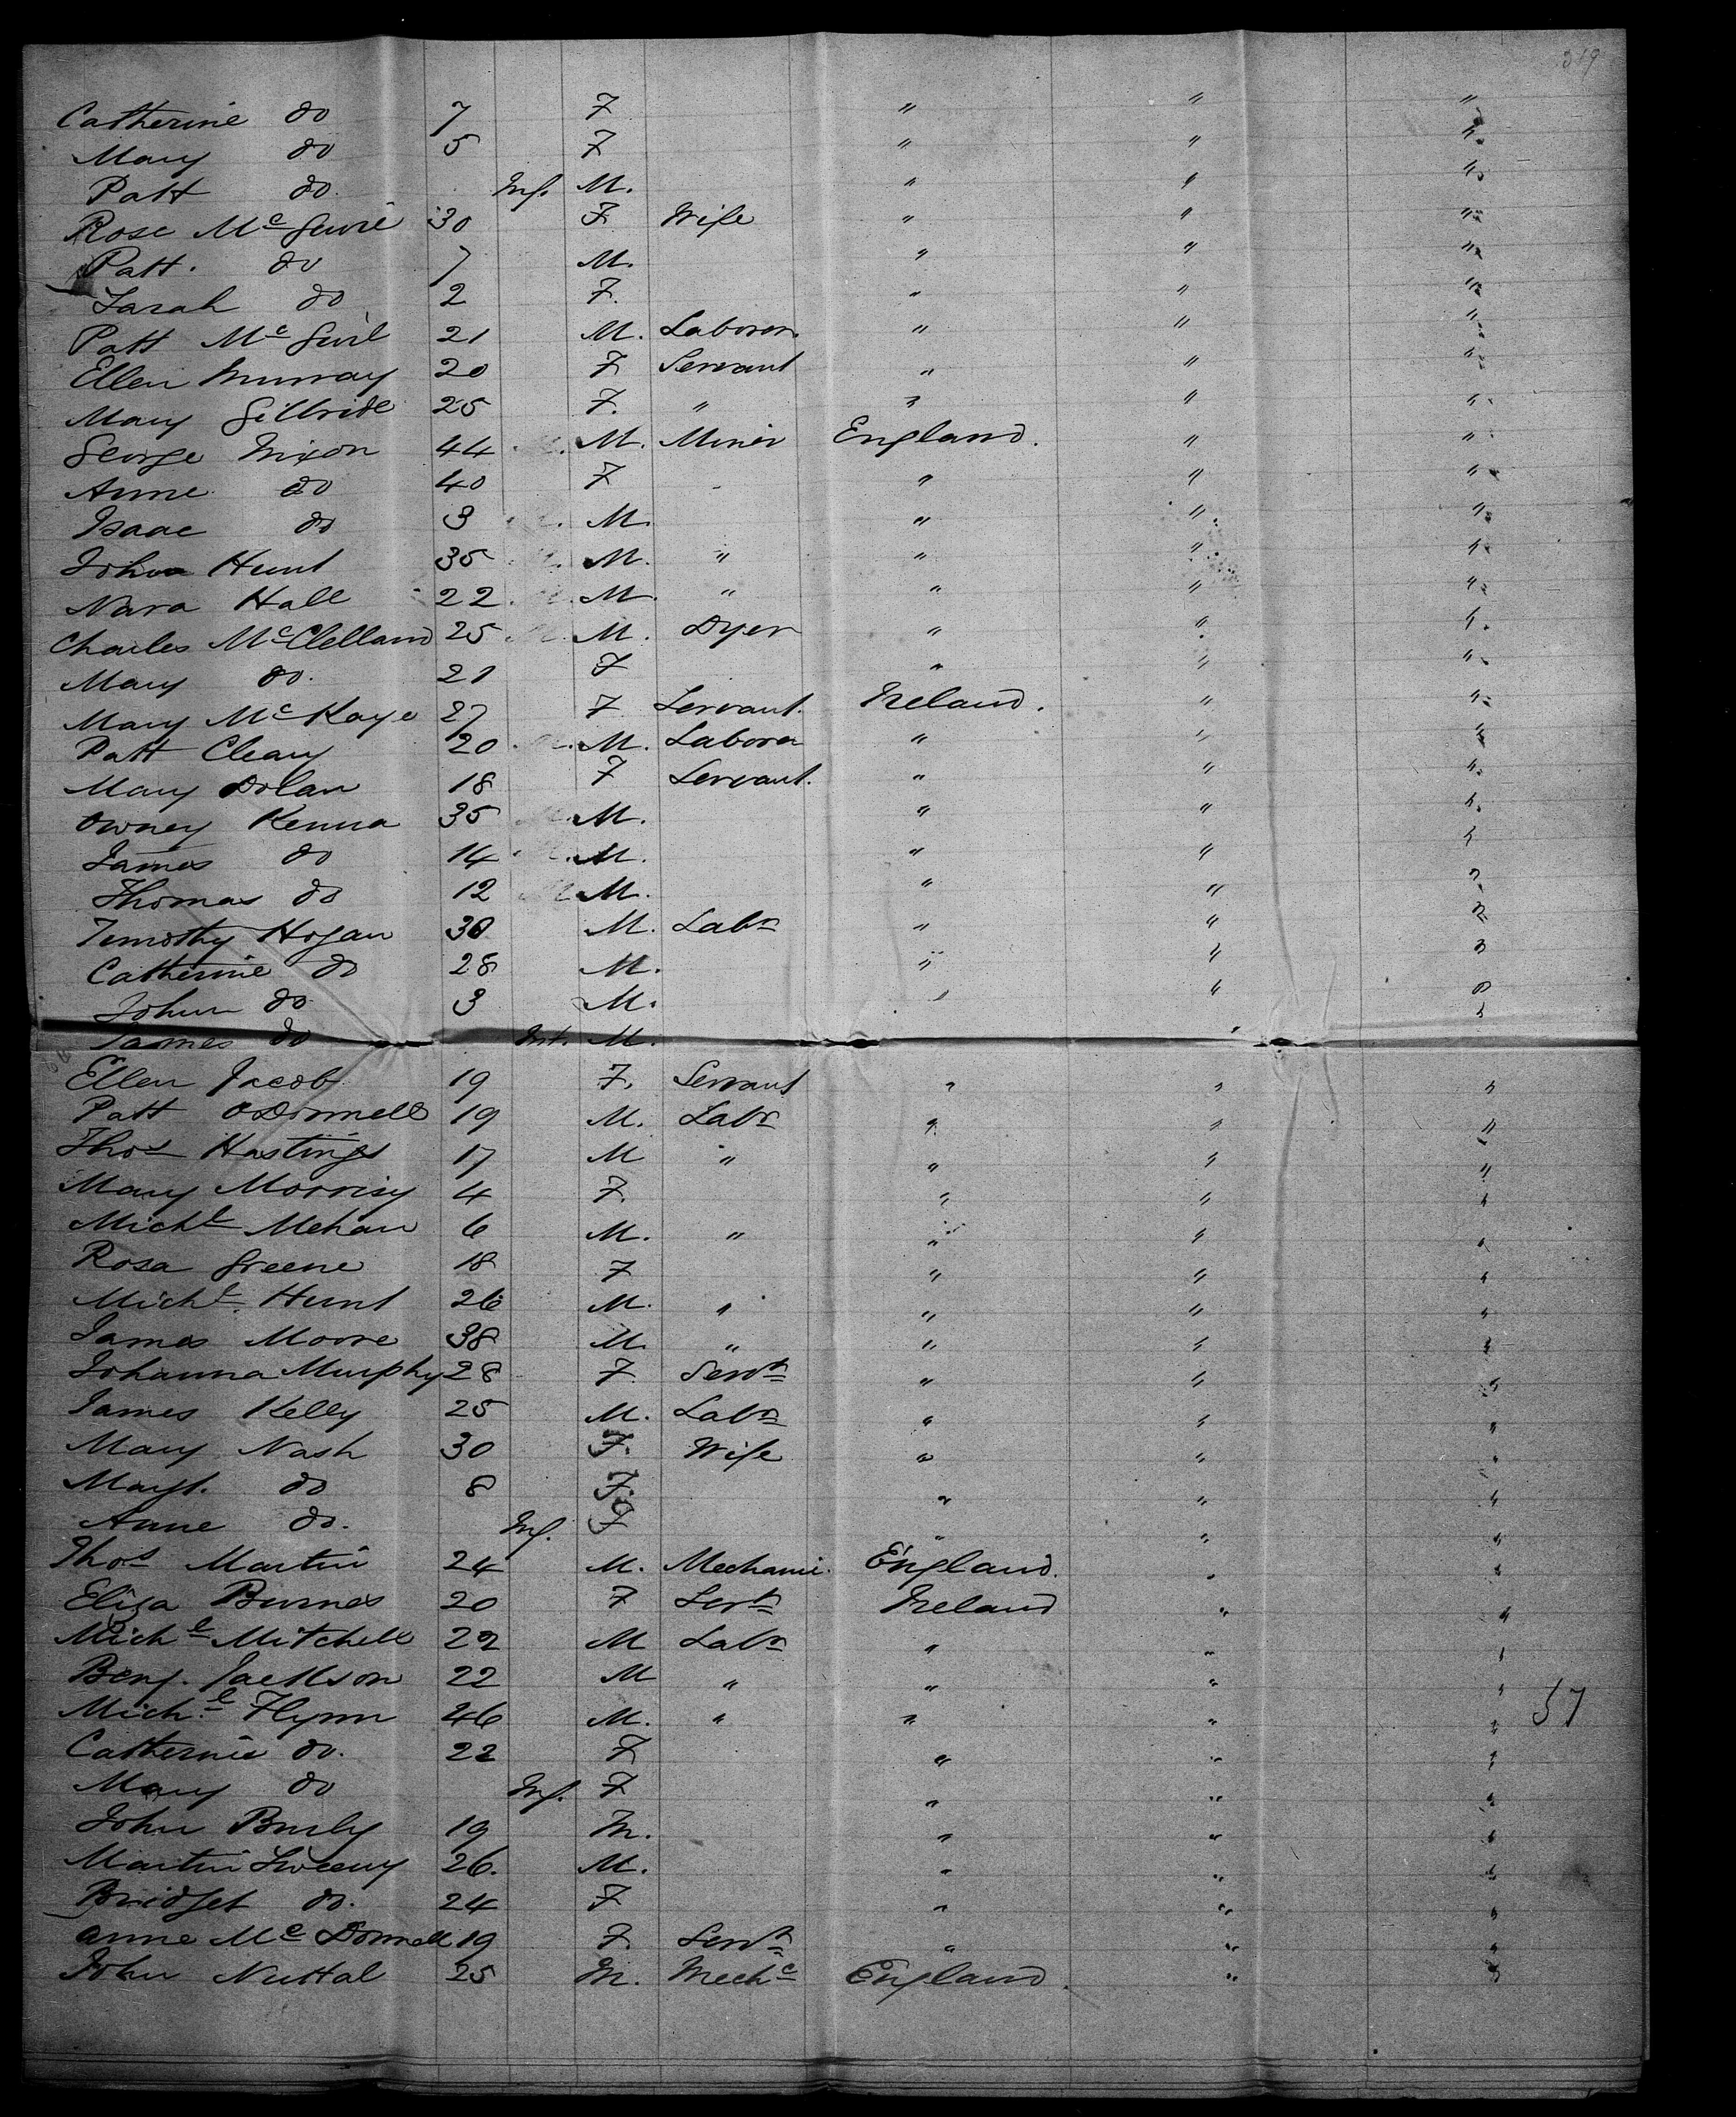 319
Catherine do 7 F " " "
Mary do 5 F " " "
Patt do Inf. M. " " "
Rose McGuire 30 F Wife " " "
Patt. do 7 M. " " "
Sarah do 2 F. " " "
Patt McGuil 21 M. Laborer " " "
Ellen Murray 20 F Servant " " "
Mary Gillride 25 F. " " " "
George Nixon 44 M. Miner England. " "
Anne do 40 F " " "
Isaac do 3 M. " " "
John Hunt 35 M. " " " "
Nara Hall 22 M. " " " "
Charles McClelland 25 M. Dyer " " "
Mary do. 21 F " " "
Mary McKaye 27 F Servant. Ireland. " "
Patt Cleary 20 M. Laborer " " "
Mary Dolan 18 F Servant. " " "
Owney Kenna 35 M. " " "
James do 14 M. " " "
Thomas do 12 M. " " "
Timothy Hogan 30 M. Labr " " "
Catherine do 28 M. " " "
John do 3 M. " " "
James do Inf. M. " "
Ellen Jacob 19 F. Servant " " "
Patt ODonnell 19 M. Labr " " "
Thos Hastings 17 M " " " "
Mary Morrisy 4 F. " " "
Michl Mehan 6 M. " " " "
Rosa Greene 18 F " " "
Michl Hunt 26 M. " " " "
James Moore 38 M. " " " "
Johanna Murphy 28 F. Servt " " "
James Kelly 25 M. Labr " " "
Mary Nash 30 F. Wife " " "
Margt. do 8 F. " " "
Anne do. Inf. F " " "
Thos Martin 24 M. Mechanic England. " "
Eliza Burnes 20 F Servt Ireland " "
Michl Mitchell 22 M Labr " " "
Benj. Jackson 22 M " " " "
Michl Flynn 46 M. " " " " 57
Catherine do. 22 F " " "
Mary do Inf. F " " "
John Burly 19 M. " " "
Martin Sweeny 26. M. " " "
Bridget do. 24 F " " "
Anne McDonnell 19 F. Servt " " "
John Nuttal 25 M. Mechc England. " "